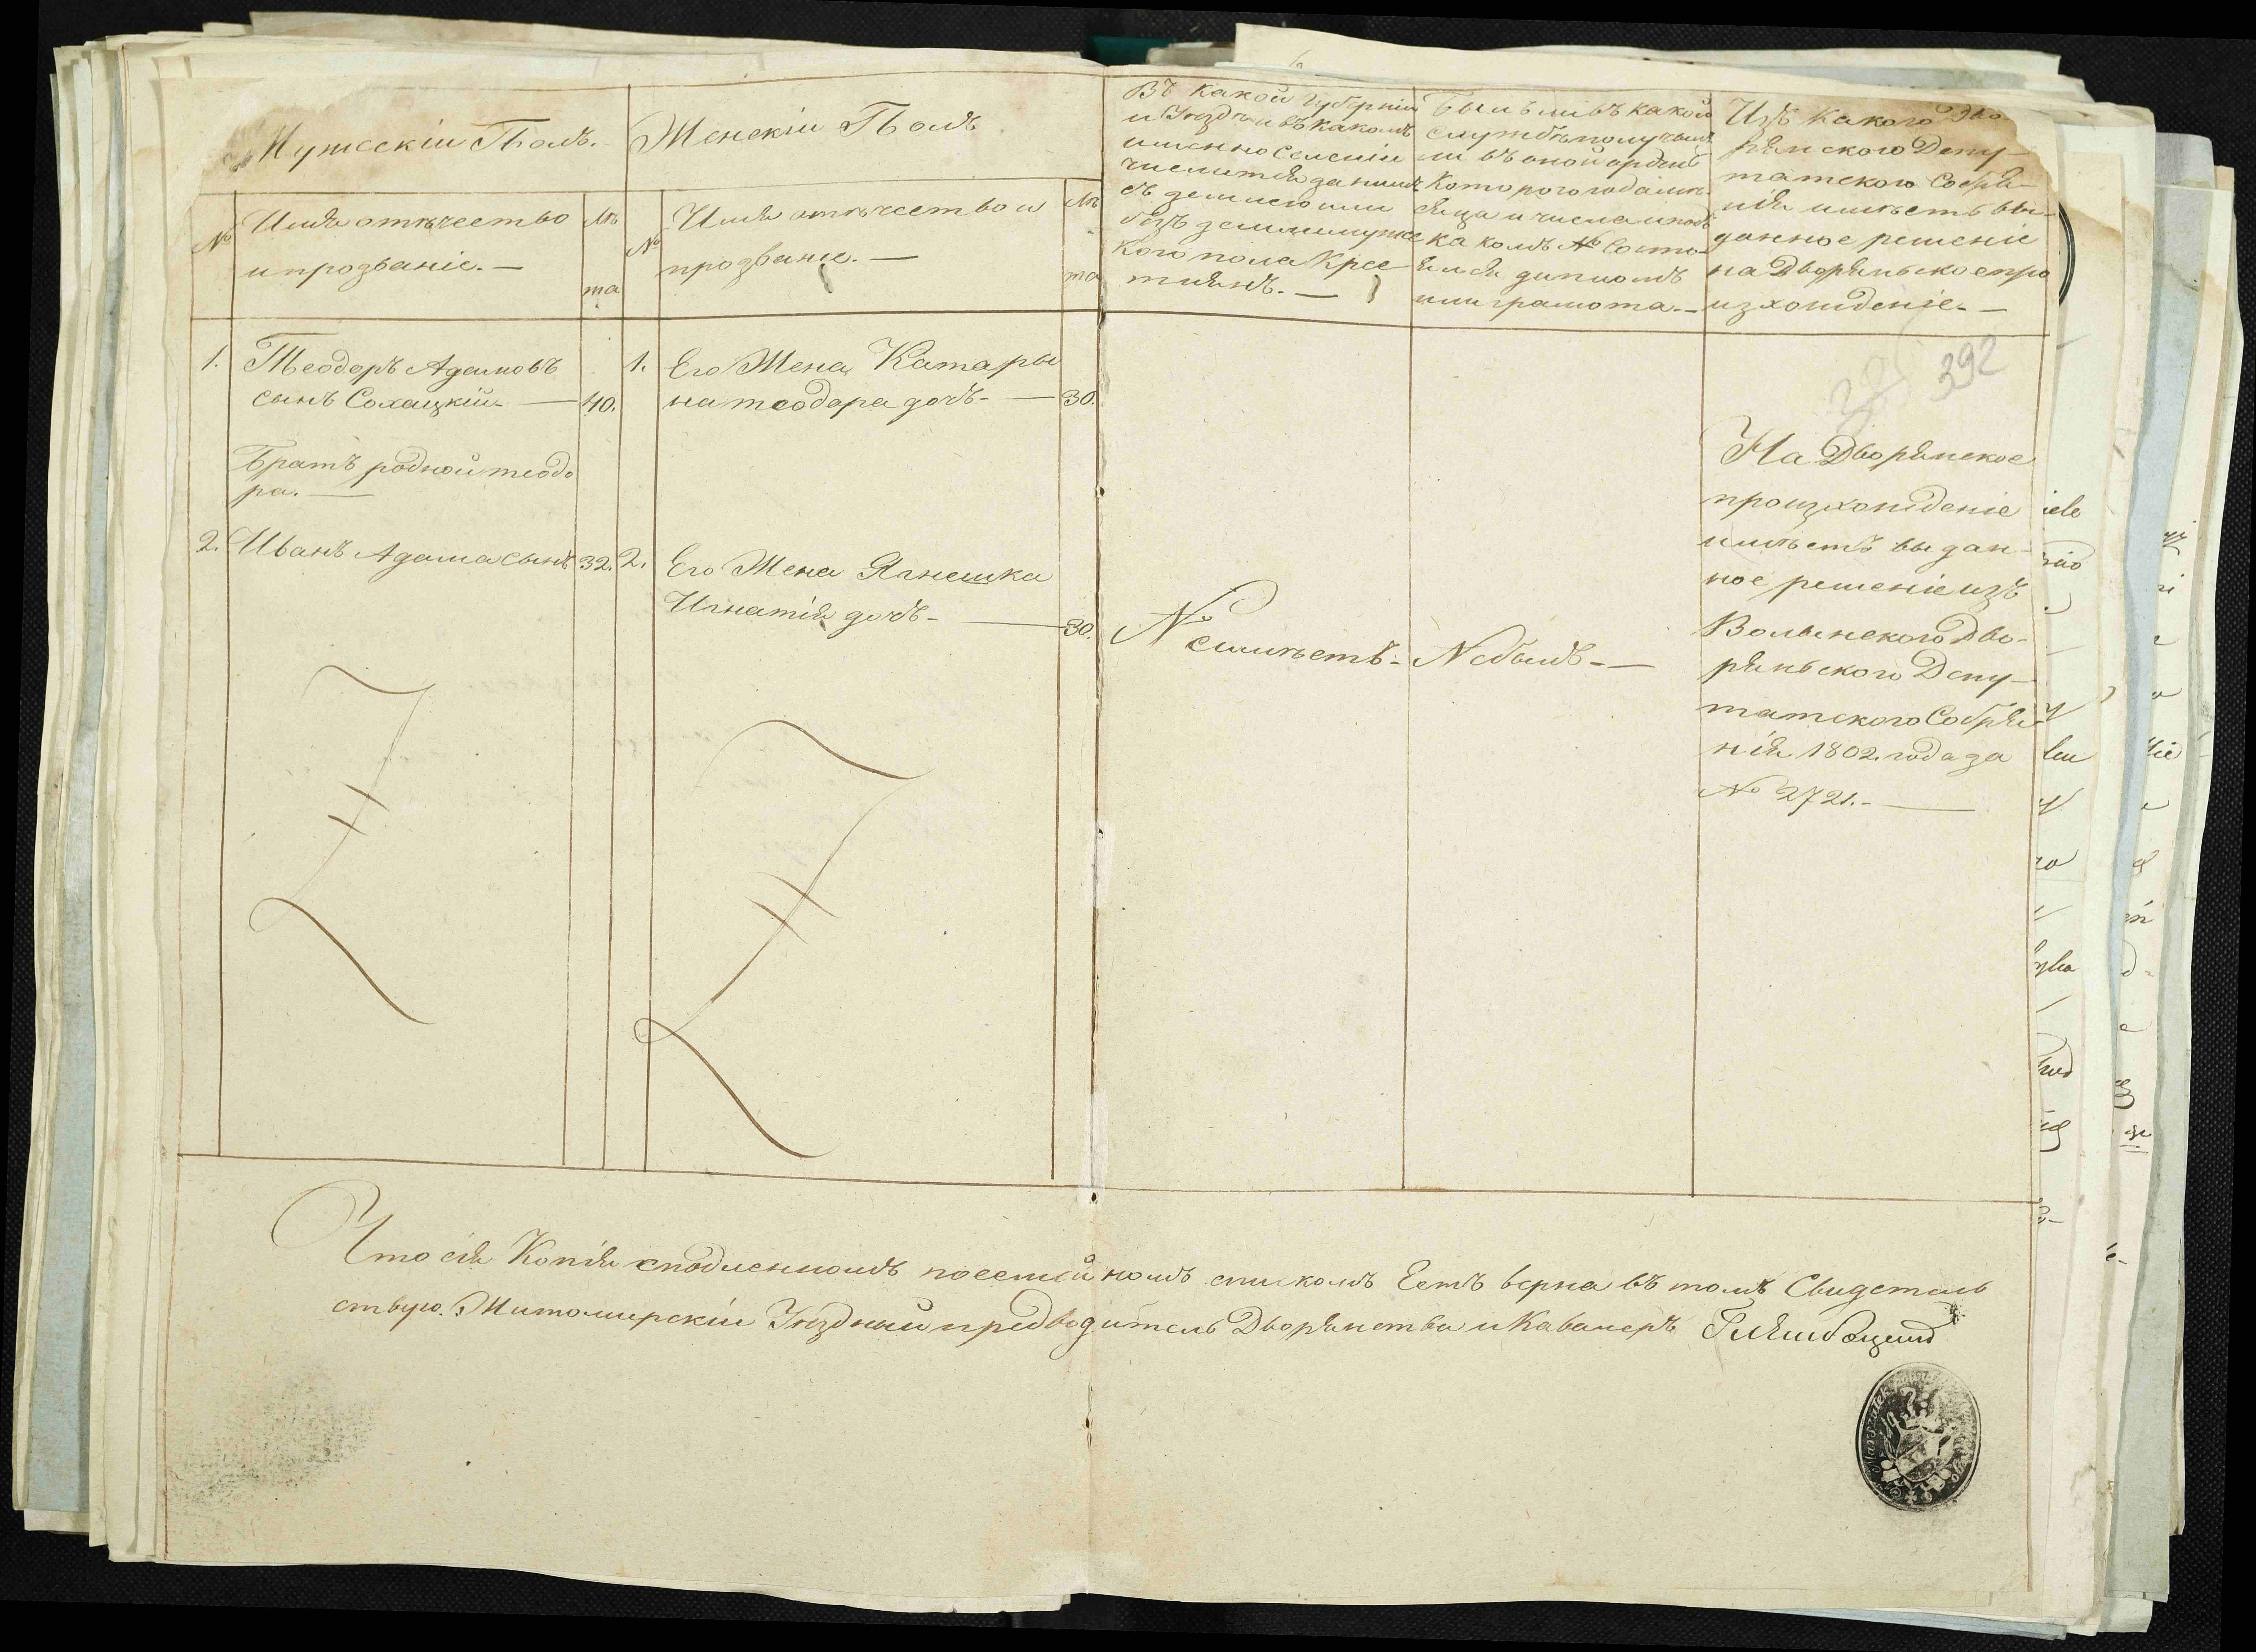 Мужескій Полъ.
Женскій Полъ
№
Имя отъчество
и прозваніе. —
лѣ
та
№
Имя отъчество и
прозваніе. —
лѣ
та
Въ какой Губерніи
и Уѣздѣ и въ какомъ
именно Селеніи
числится за нимъ
съ землею или
безъ земли мужес
кого пола Крес
тиянъ. —
Былъ ли въ какой
службѣ получилъ
ли въ оной орденъ
которого года мѣ
сяца и числа и под
ка комъ № состо
ялся дипломъ
или грамота. —
Изъ Какого Дво
рянского Депу
татского Собра
нія имѣетъ вы
данное решеніе
на Дворяньское про
изхожденіе. —
392
1.
Теодоръ Адамовъ
сынъ Сохацкій — 40.
1.
Его Жена Катары
на теодора дочь — 30.
Братъ родной теодо
ра. —
2. Иванъ Адама сынъ 32.
2.
Его Жена Ягнешка
Игнатія дочь — 30.
Не имѣетъ —
Не былъ —
На Дворянское
произхожденіе
имѣетъ выдан
ное решеніе изъ
Волынского Дво-
ряньского Депу-
татского Собра
нія 1802. года за
№ 2721. —
Что сія Копія сподленнымъ посемейнымъ спискомъ Естъ верна въ томъ Свидетель
ствую. Житомирскій Уѣздный предводитель Дворянства и Кавалеръ